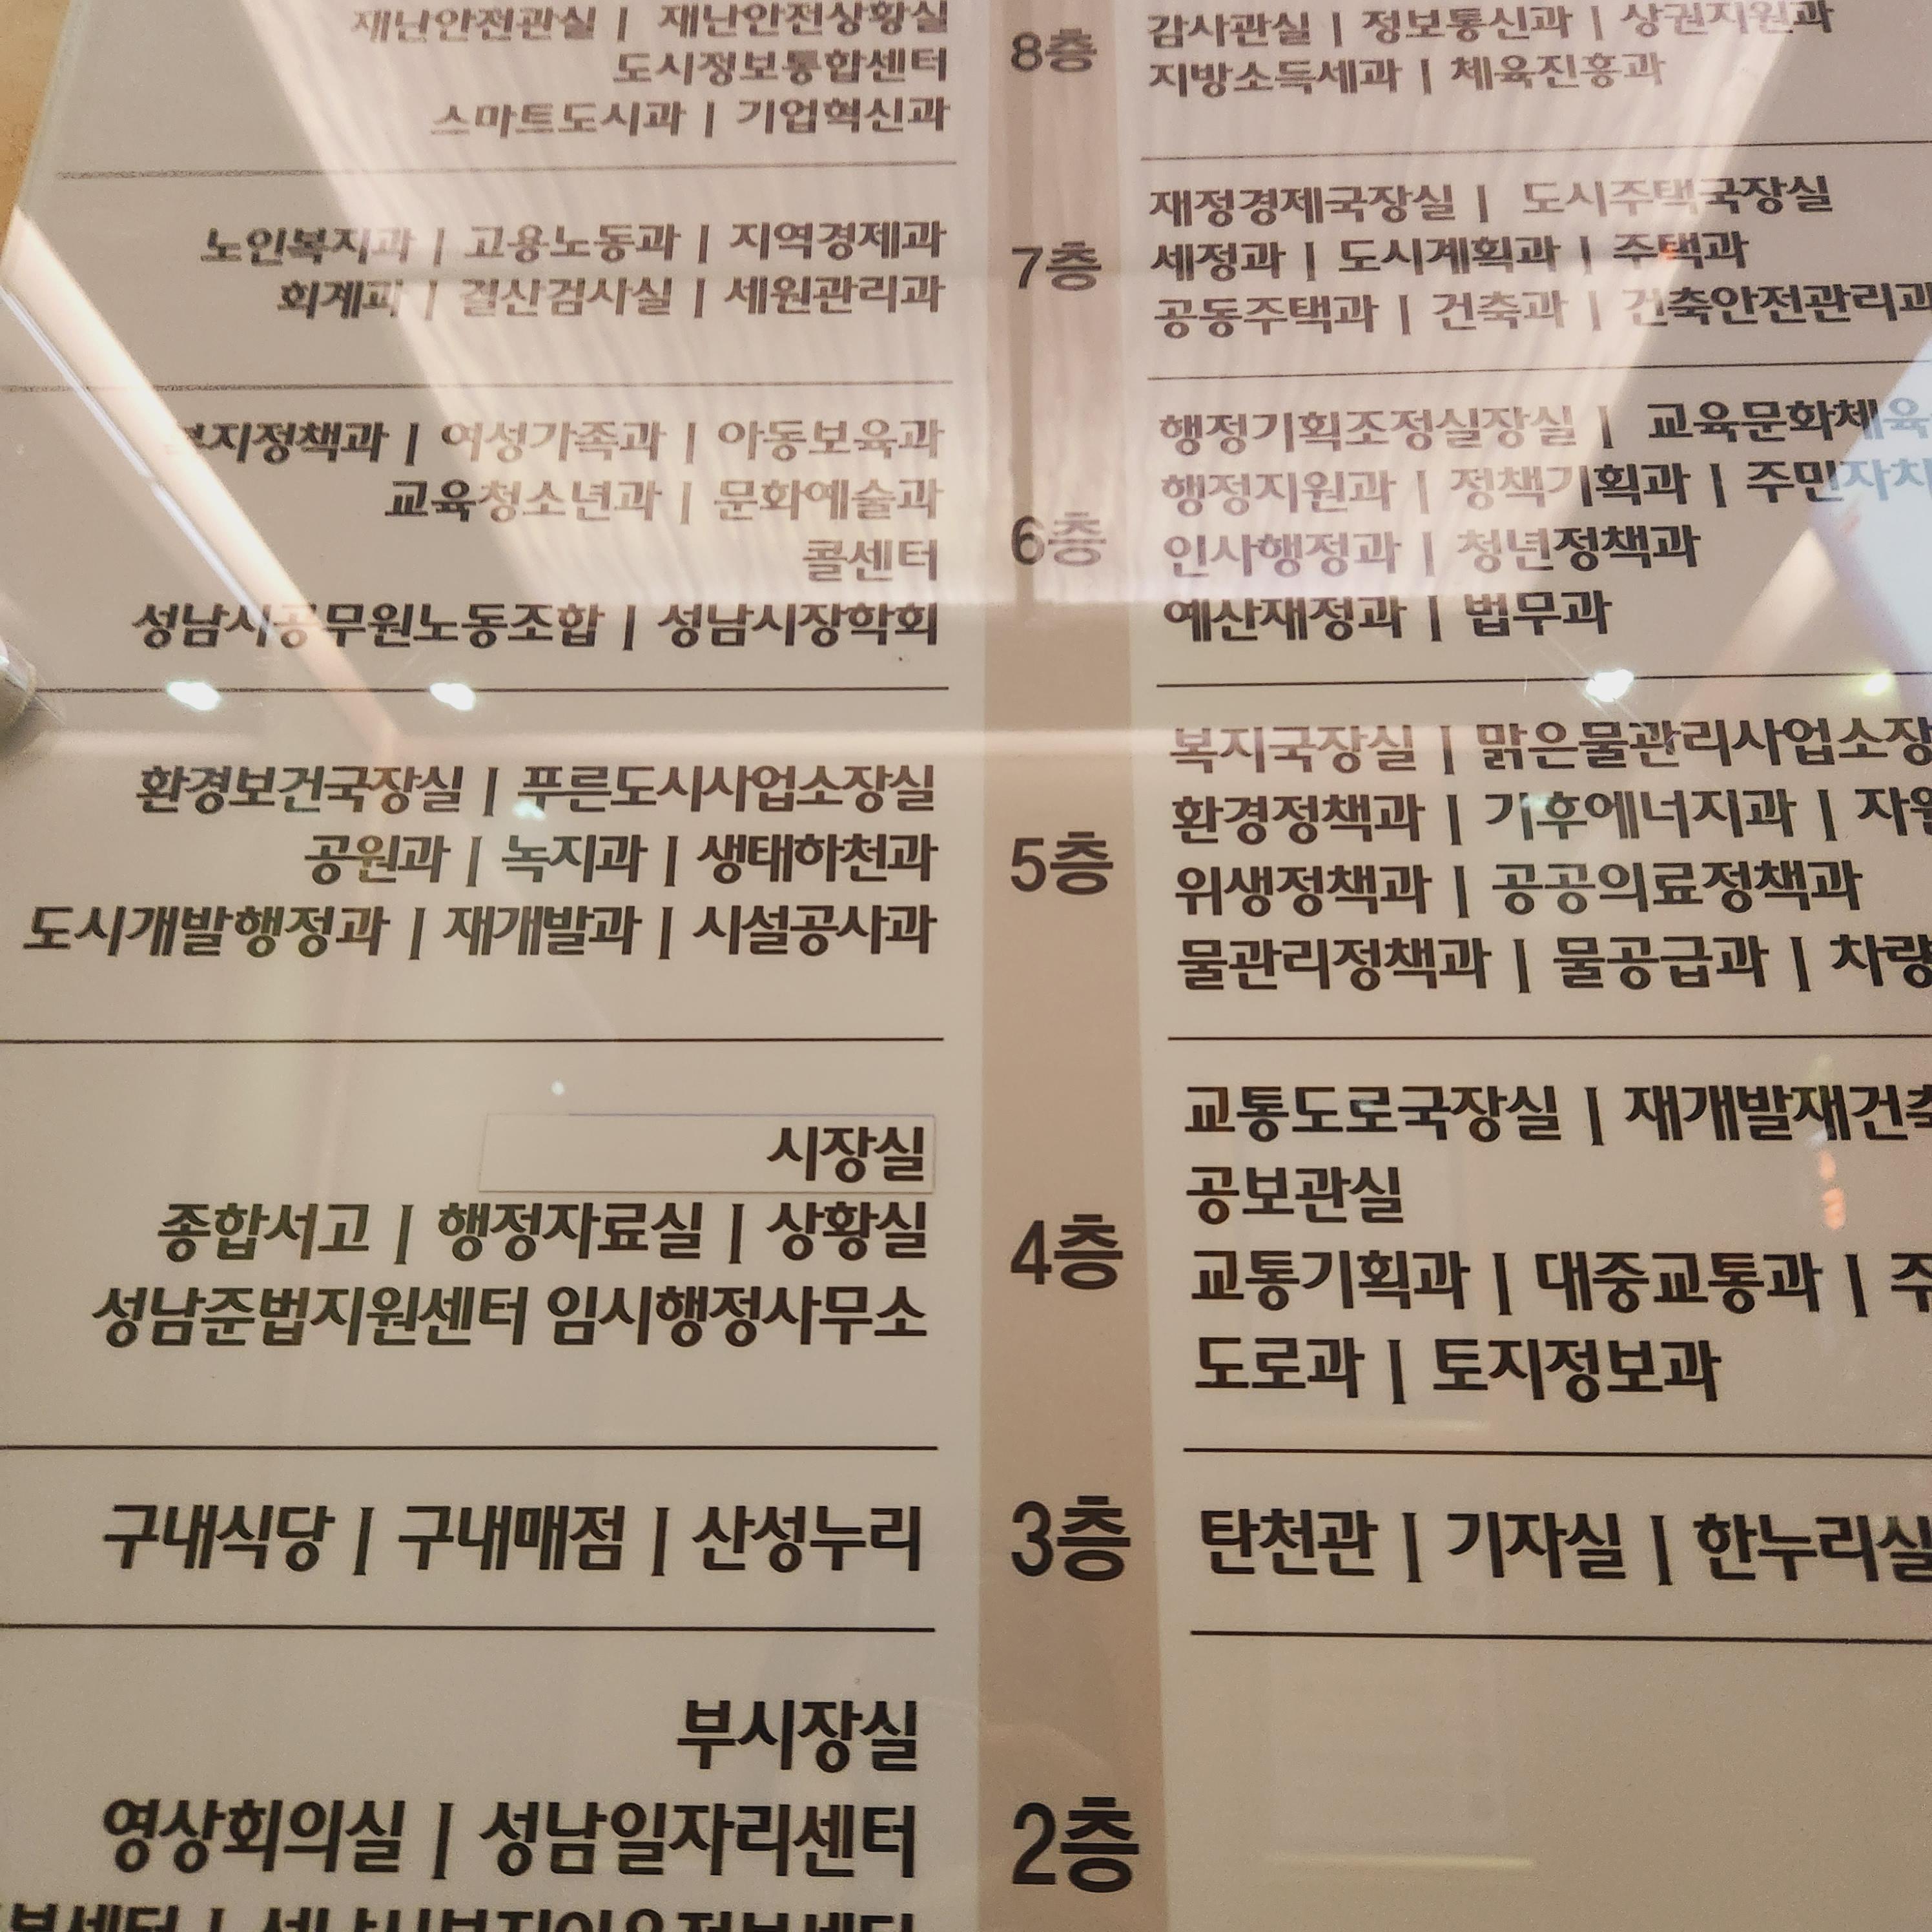 재난안전관실 | 재난안전상황실
도시정보통합센터
스마트도시과 | 기업혁신과
8층
감사관실 | 정보통신과 | 상권지원과
지방소득세과 | 체육진흥과
노인복지과 | 고용노동과 | 지역경제과
회계과 | 결산검사실 | 세원관리과
7층
재정경제국장실 | 도시주택국장실
세정과 | 도시계획과 | 주택과
공동주택과 | 건축과 | 건축안전관리과
복지정책과 | 여성가족과 | 아동보육과
교육청소년과 | 문화예술과
콜센터
성남시공무원노동조합 | 성남시장학회
6층
행정기획조정실장실 | 교육문화체육
행정지원과 | 정책기획과 | 주민자치
인사행정과 | 청년정책과
예산재정과 | 법무과
환경보건국장실 | 푸른도시사업소장실
공원과 | 녹지과 | 생태하천과
도시개발행정과 | 재개발과 | 시설공사과
5층
복지국장실 | 맑은물관리사업소장
환경정책과 | 기후에너지과 | 자원
위생정책과 | 공공의료정책과
물관리정책과 | 물공급과 | 차량
시장실
종합서고 | 행정자료실 | 상황실
성남준법지원센터 임시행정사무소
4층
교통도로국장실 | 재개발재건축
공보관실
교통기획과 | 대중교통과 | 주
도로과 | 토지정보과
구내식당 | 구내매점 | 산성누리
3층
탄천관 | 기자실 | 한누리실
부시장실
영상회의실 | 성남일자리센터
2층